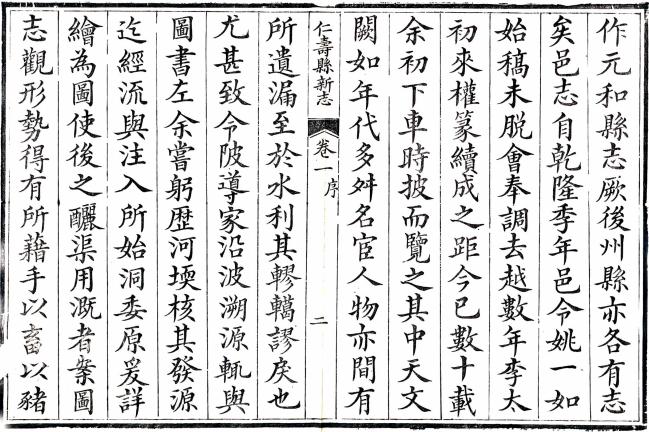 作元和縣志厥後州縣亦各有志
矣邑志自乾隆季年邑令姚一如
始稿未脫會奉調去越數年李太
初來權篆續成之距今已數十載
余初下車時披而覽之其中天文
闕如年代多舛名宦人物亦間有
仁壽縣新志 卷一 序 二
所遺漏至於水利其轇轕謬戾也
尤甚致令陂導家沿波溯源輒與
圖書左余嘗躬歷河堧核其發源
迄經流與注入所始洞委原爰詳
繪為圖使後之釃渠用溉者案圖
志觀形勢得有所藉手以畜以豬